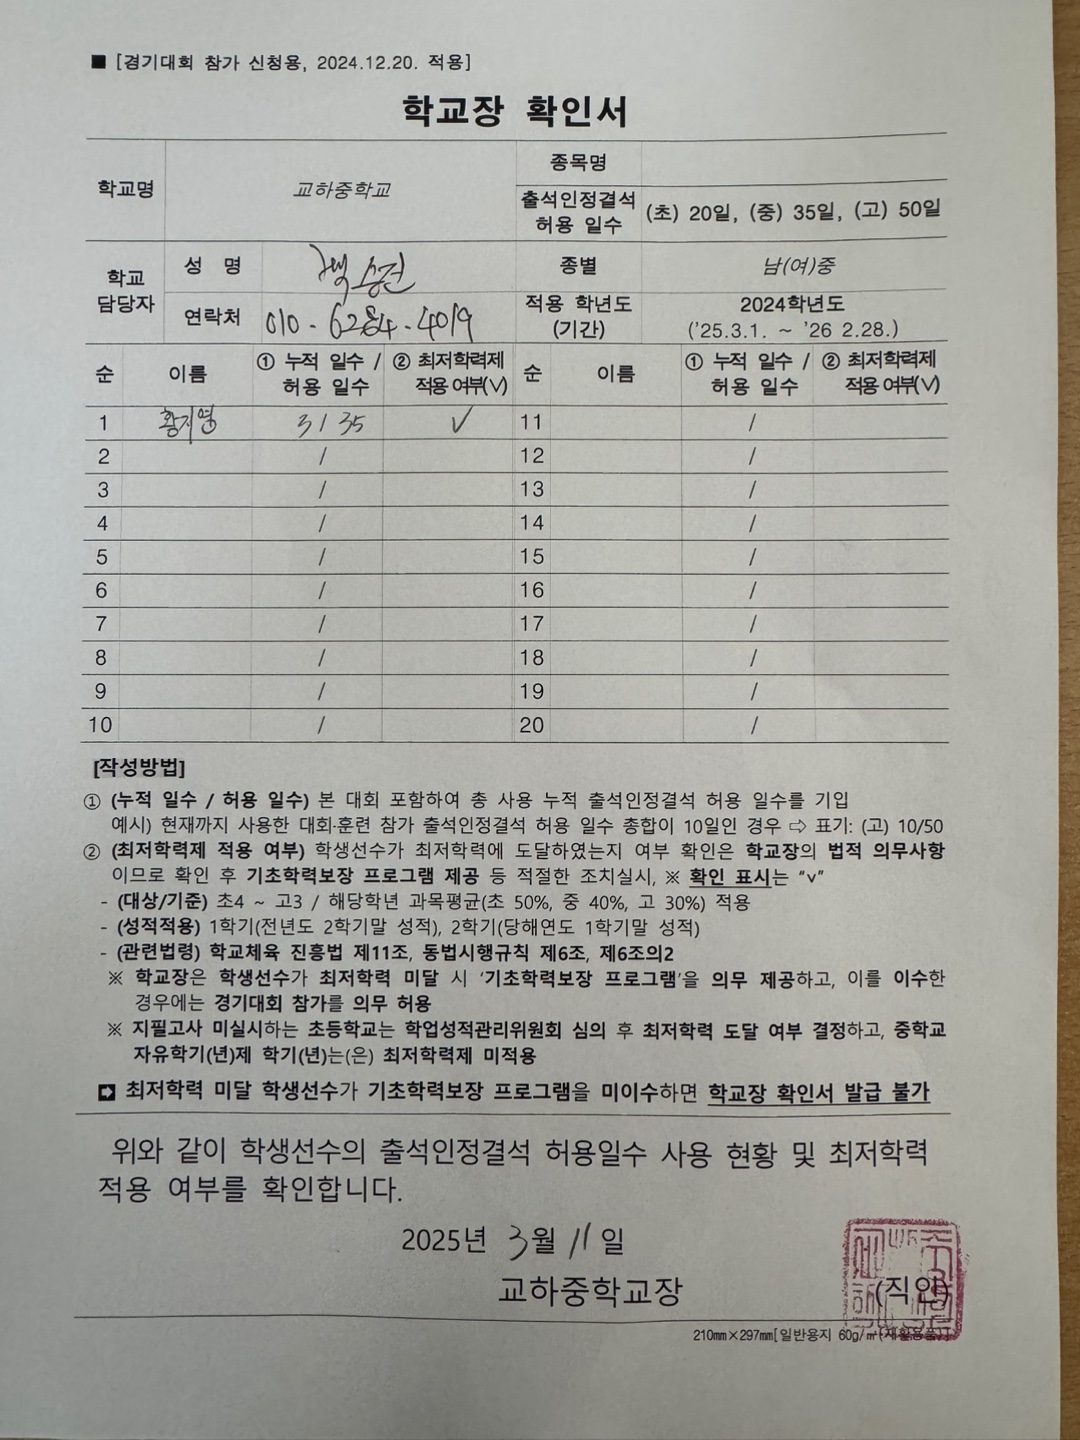 ■ [경기대회 참가 신청용, 2024.12.20. 적용]
학교장 확인서
학교명 교하중학교 종목명
출석인정결석 허용 일수 (초) 20일, (중) 35일, (고) 50일
학교 담당자 성 명 종별 남(여)중
연락처 010-6284-4019 적용 학년도 (기간) 2024학년도 ('25.3.1. ~ '26 2.28.)
순 이름 ① 누적 일수 / 허용 일수 ② 최저학력제 적용 여부(∨) 순 이름 ① 누적 일수 / 허용 일수 ② 최저학력제 적용 여부(∨)
1 황지영 3 / 35 ✓ 11 /
2 / 12 /
3 / 13 /
4 / 14 /
5 / 15 /
6 / 16 /
7 / 17 /
8 / 18 /
9 / 19 /
10 / 20 /
[작성방법]
① (누적 일수 / 허용 일수) 본 대회 포함하여 총 사용 누적 출석인정결석 허용 일수를 기입
예시) 현재까지 사용한 대회·훈련 참가 출석인정결석 허용 일수 총합이 10일인 경우 ⇨ 표기: (고) 10/50
② (최저학력제 적용 여부) 학생선수가 최저학력에 도달하였는지 여부 확인은 학교장의 법적 의무사항
이므로 확인 후 기초학력보장 프로그램 제공 등 적절한 조치실시, ※ 확인 표시는 “v”
- (대상/기준) 초4 ~ 고3 / 해당학년 과목평균(초 50%, 중 40%, 고 30%) 적용
- (성적적용) 1학기(전년도 2학기말 성적), 2학기(당해연도 1학기말 성적)
- (관련법령) 학교체육 진흥법 제11조, 동법시행규칙 제6조, 제6조의2
※ 학교장은 학생선수가 최저학력 미달 시 '기초학력보장 프로그램'을 의무 제공하고, 이를 이수한
경우에는 경기대회 참가를 의무 허용
※ 지필고사 미실시하는 초등학교는 학업성적관리위원회 심의 후 최저학력 도달 여부 결정하고, 중학교
자유학기(년)제 학기(년)는(은) 최저학력제 미적용
➡ 최저학력 미달 학생선수가 기초학력보장 프로그램을 미이수하면 학교장 확인서 발급 불가
위와 같이 학생선수의 출석인정결석 허용일수 사용 현황 및 최저학력
적용 여부를 확인합니다.
2025년 3월 11일
교하중학교장 (직인)
210㎜×297㎜[일반용지 60g/㎡(재활용품)]